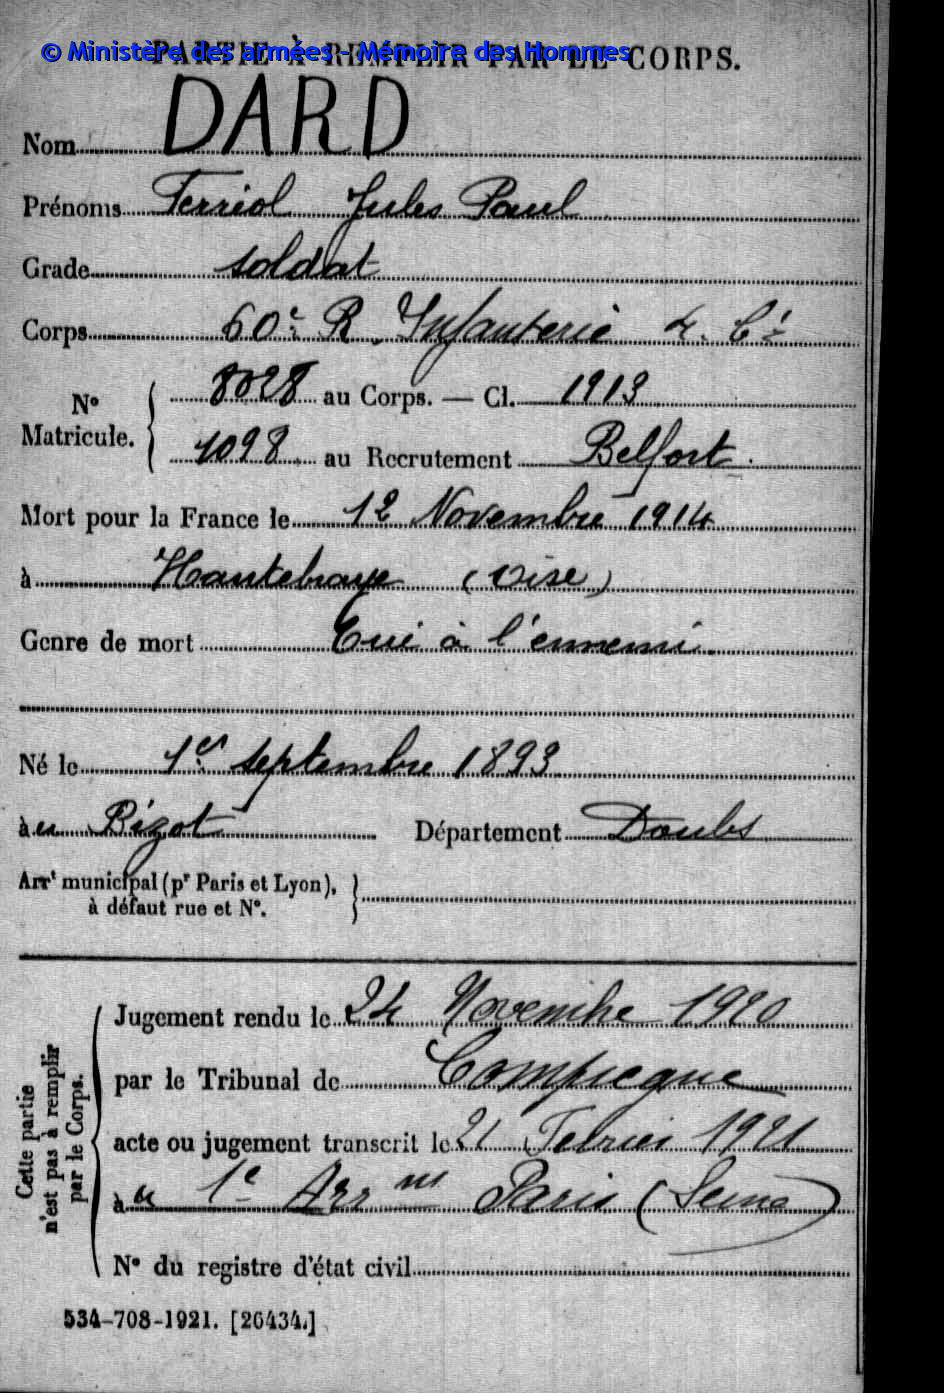 © Ministère des armées - Mémoire des Hommes
PARTIE À REMPLIR PAR LE CORPS.
Nom DARD
Prénoms Ferréol Jules Paul
Grade soldat
Corps 60e R. Infanterie 4. Cie
N° Matricule. 8028 au Corps. — Cl. 1913
1098 au Recrutement Belfort.
Mort pour la France le 12 Novembre 1914
à Hautebraye (Oise)
Genre de mort Tué à l'ennemi.
Né le 1er septembre 1893
à u Bizot Département Doubs
Arrt municipal (pr Paris et Lyon),
à défaut rue et N°.
Cette partie n'est pas à remplir par le Corps.
Jugement rendu le 24 Novembre 1920
par le Tribunal de Compiegne
acte ou jugement transcrit le 21 Fevrier 1921
à u 1e Arr nt Paris (Seine)
N° du registre d'état civil
534-708-1921. [26434.]